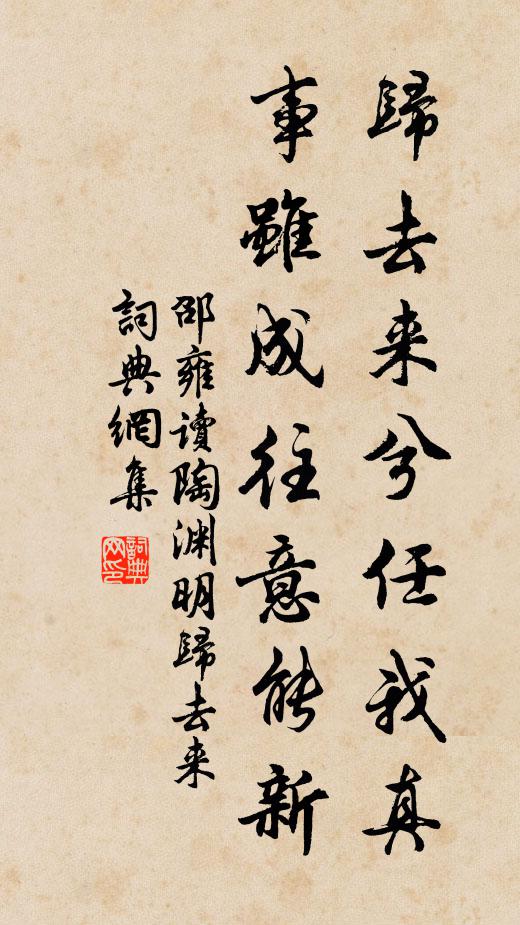 歸去来兮任我真
事雖成往意能新
邵雍讀陶渊明歸去来
詞典網集
詞典
网印